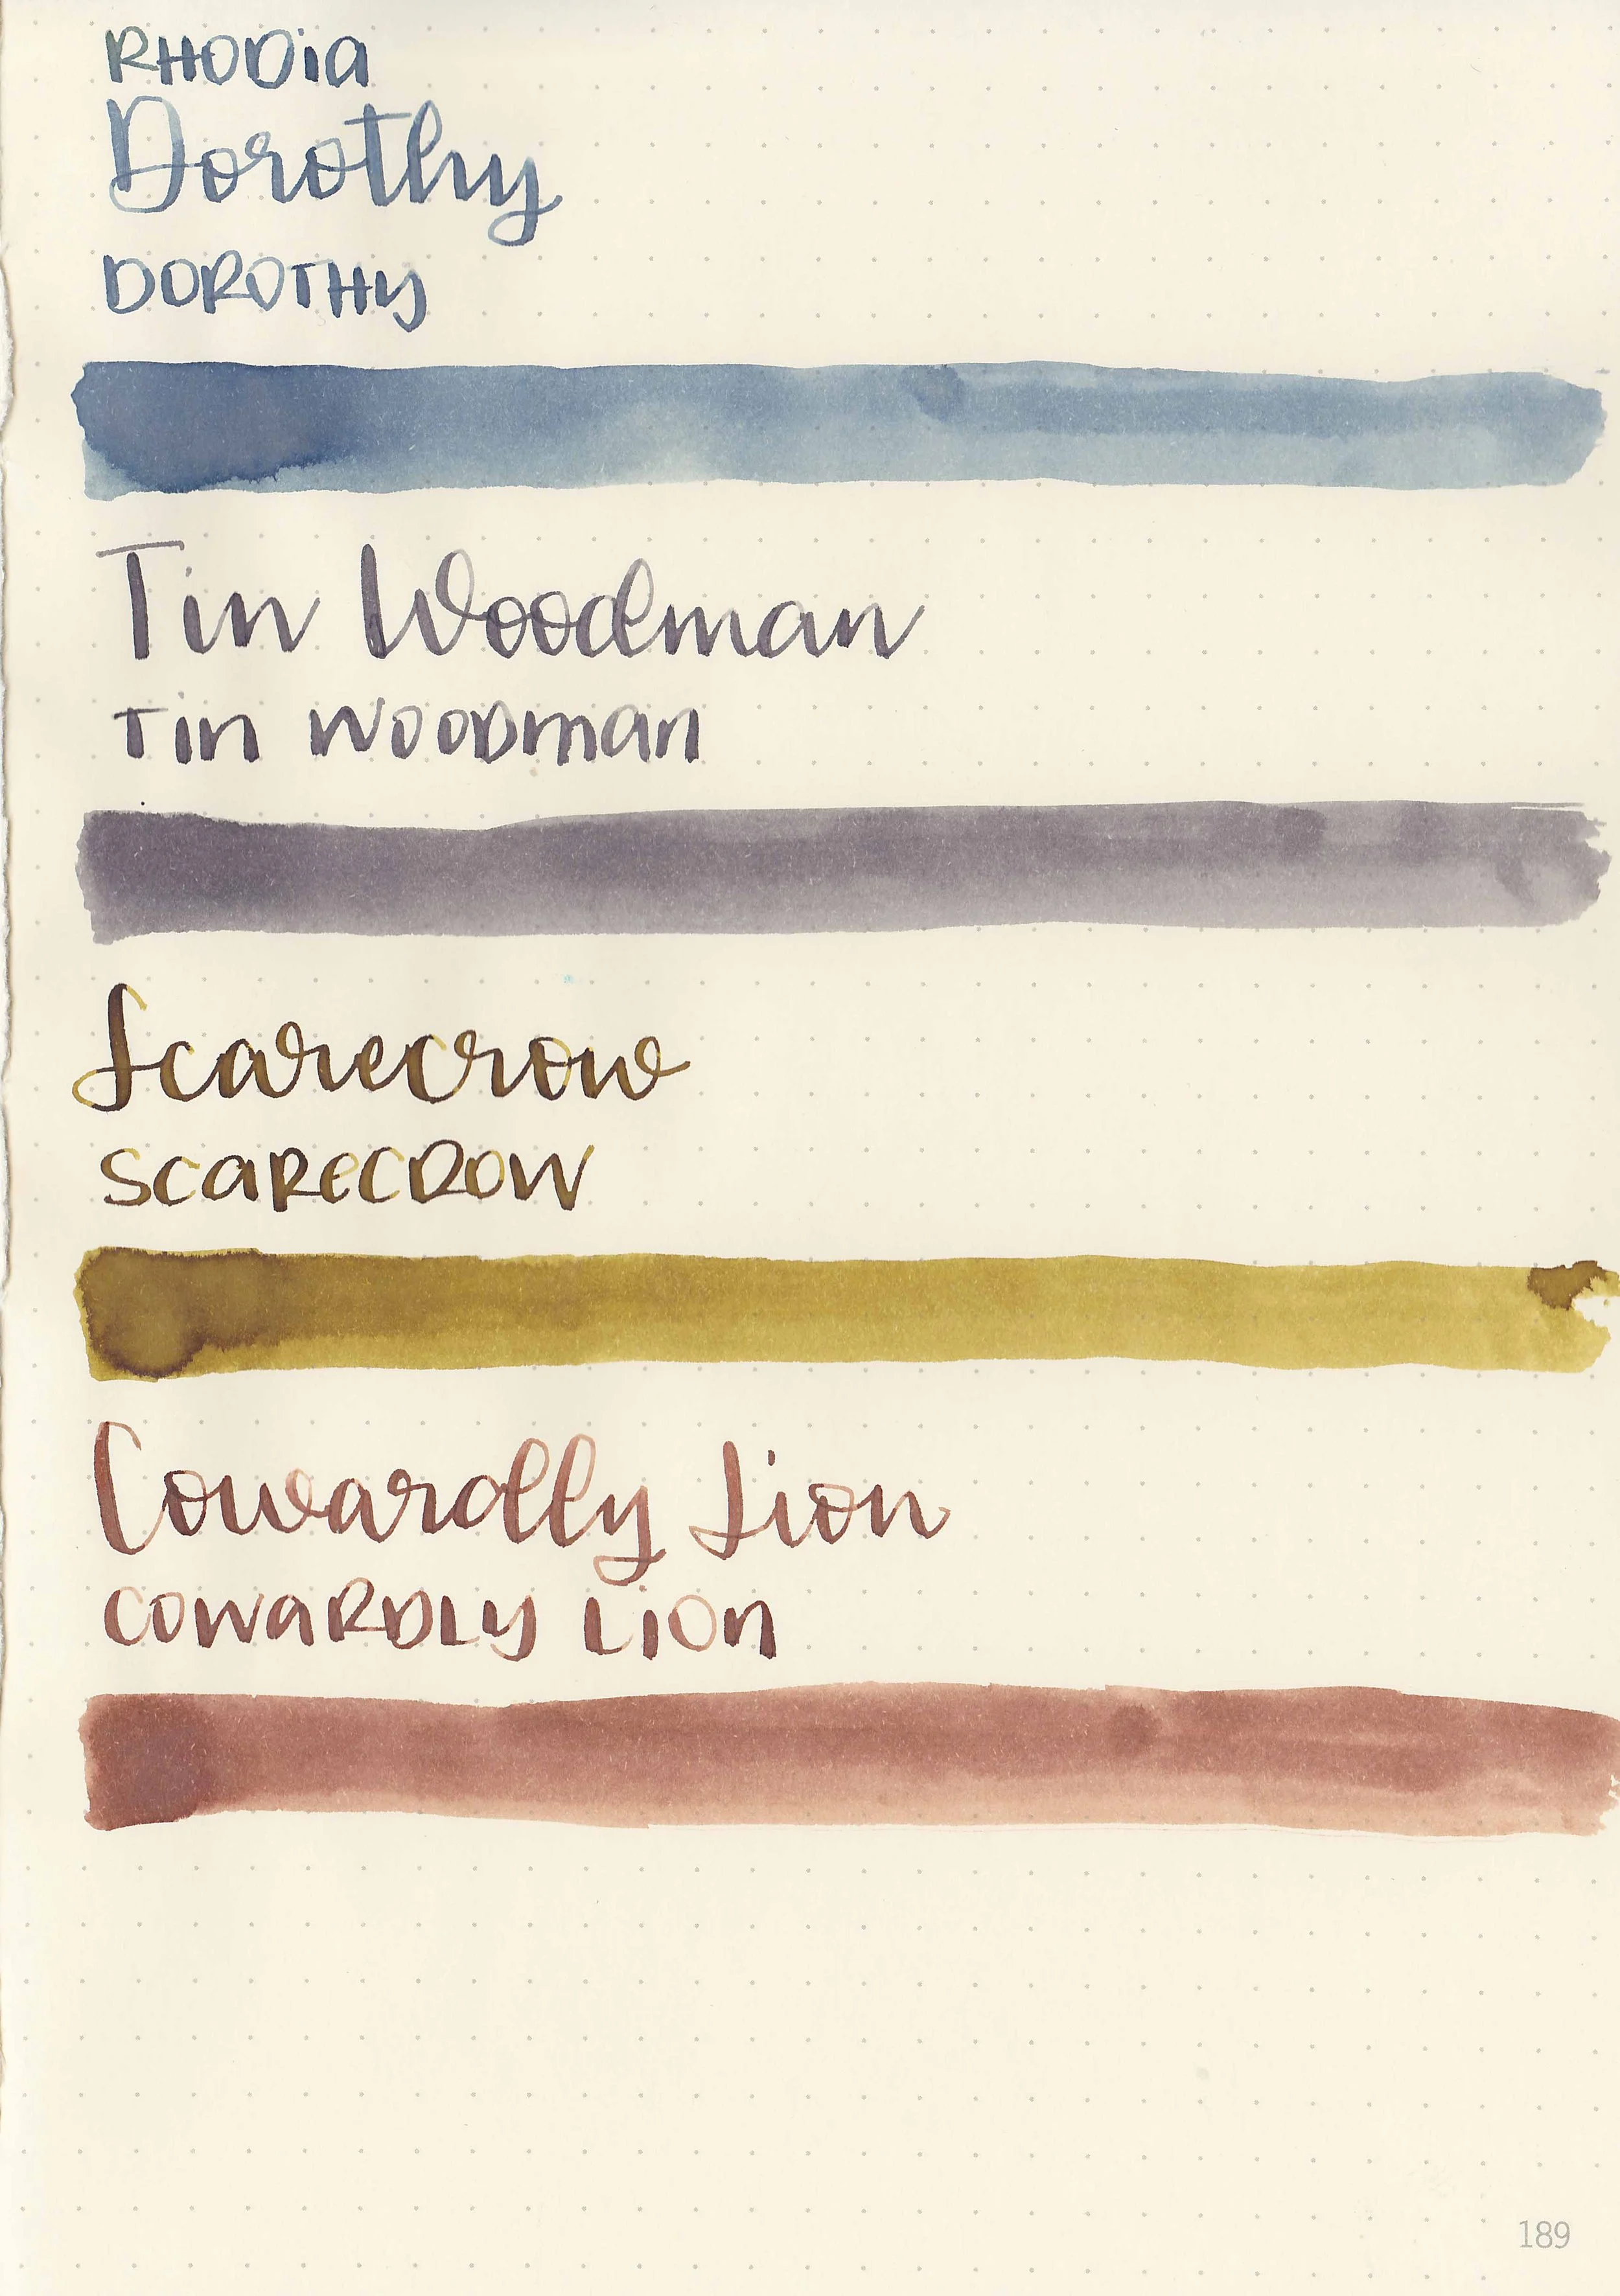 RHODia
Dorothy
DOROTHY
Tin Woodman
Tin WOODman
Scarecrow
SCaRECROW
Cowardly Lion
COWaRDLY LiOn
189